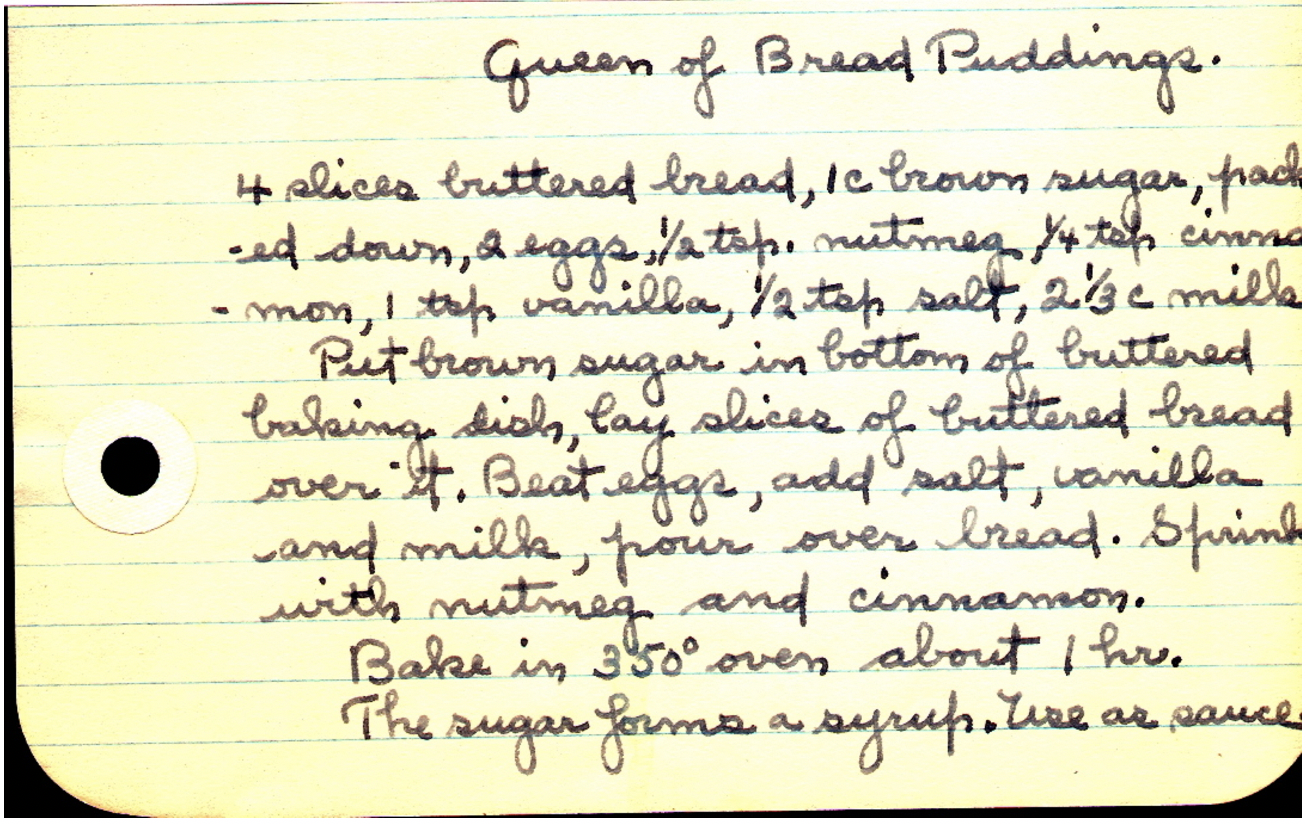 Queen of Bread Puddings.
4 slices buttered bread, 1c brown sugar, pack
-ed down, 2 eggs, 1/2 tsp. nutmeg, 1/4 tsp cinna
-mon, 1 tsp vanilla, 1/2 tsp salt, 2 1/3 c milk
Put brown sugar in bottom of buttered
baking dish, lay slices of buttered bread
over it. Beat eggs, add salt, vanilla
and milk, pour over bread. Sprink
with nutmeg and cinnamon.
Bake in 350° oven about 1 hr.
The sugar forms a syrup. Use as sauce.